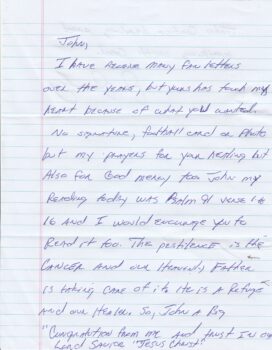 John,
I have receive many fan letters
over the years, but yours has touch my
heart because of what you wanted.
No signature, football card or photo
but my prayers for your healing but
also for God mercy too. John my
reading today was Psalm 91 verse 1 to
16 and I would encourage you to
read it too. The pestilence is the
cancer and our Heavenly Father
is taking care of it. He is a Refuge
and our Healer. So, John a Big
"Congratulation from me and trust in our
Lord Savior "Jesus Christ"